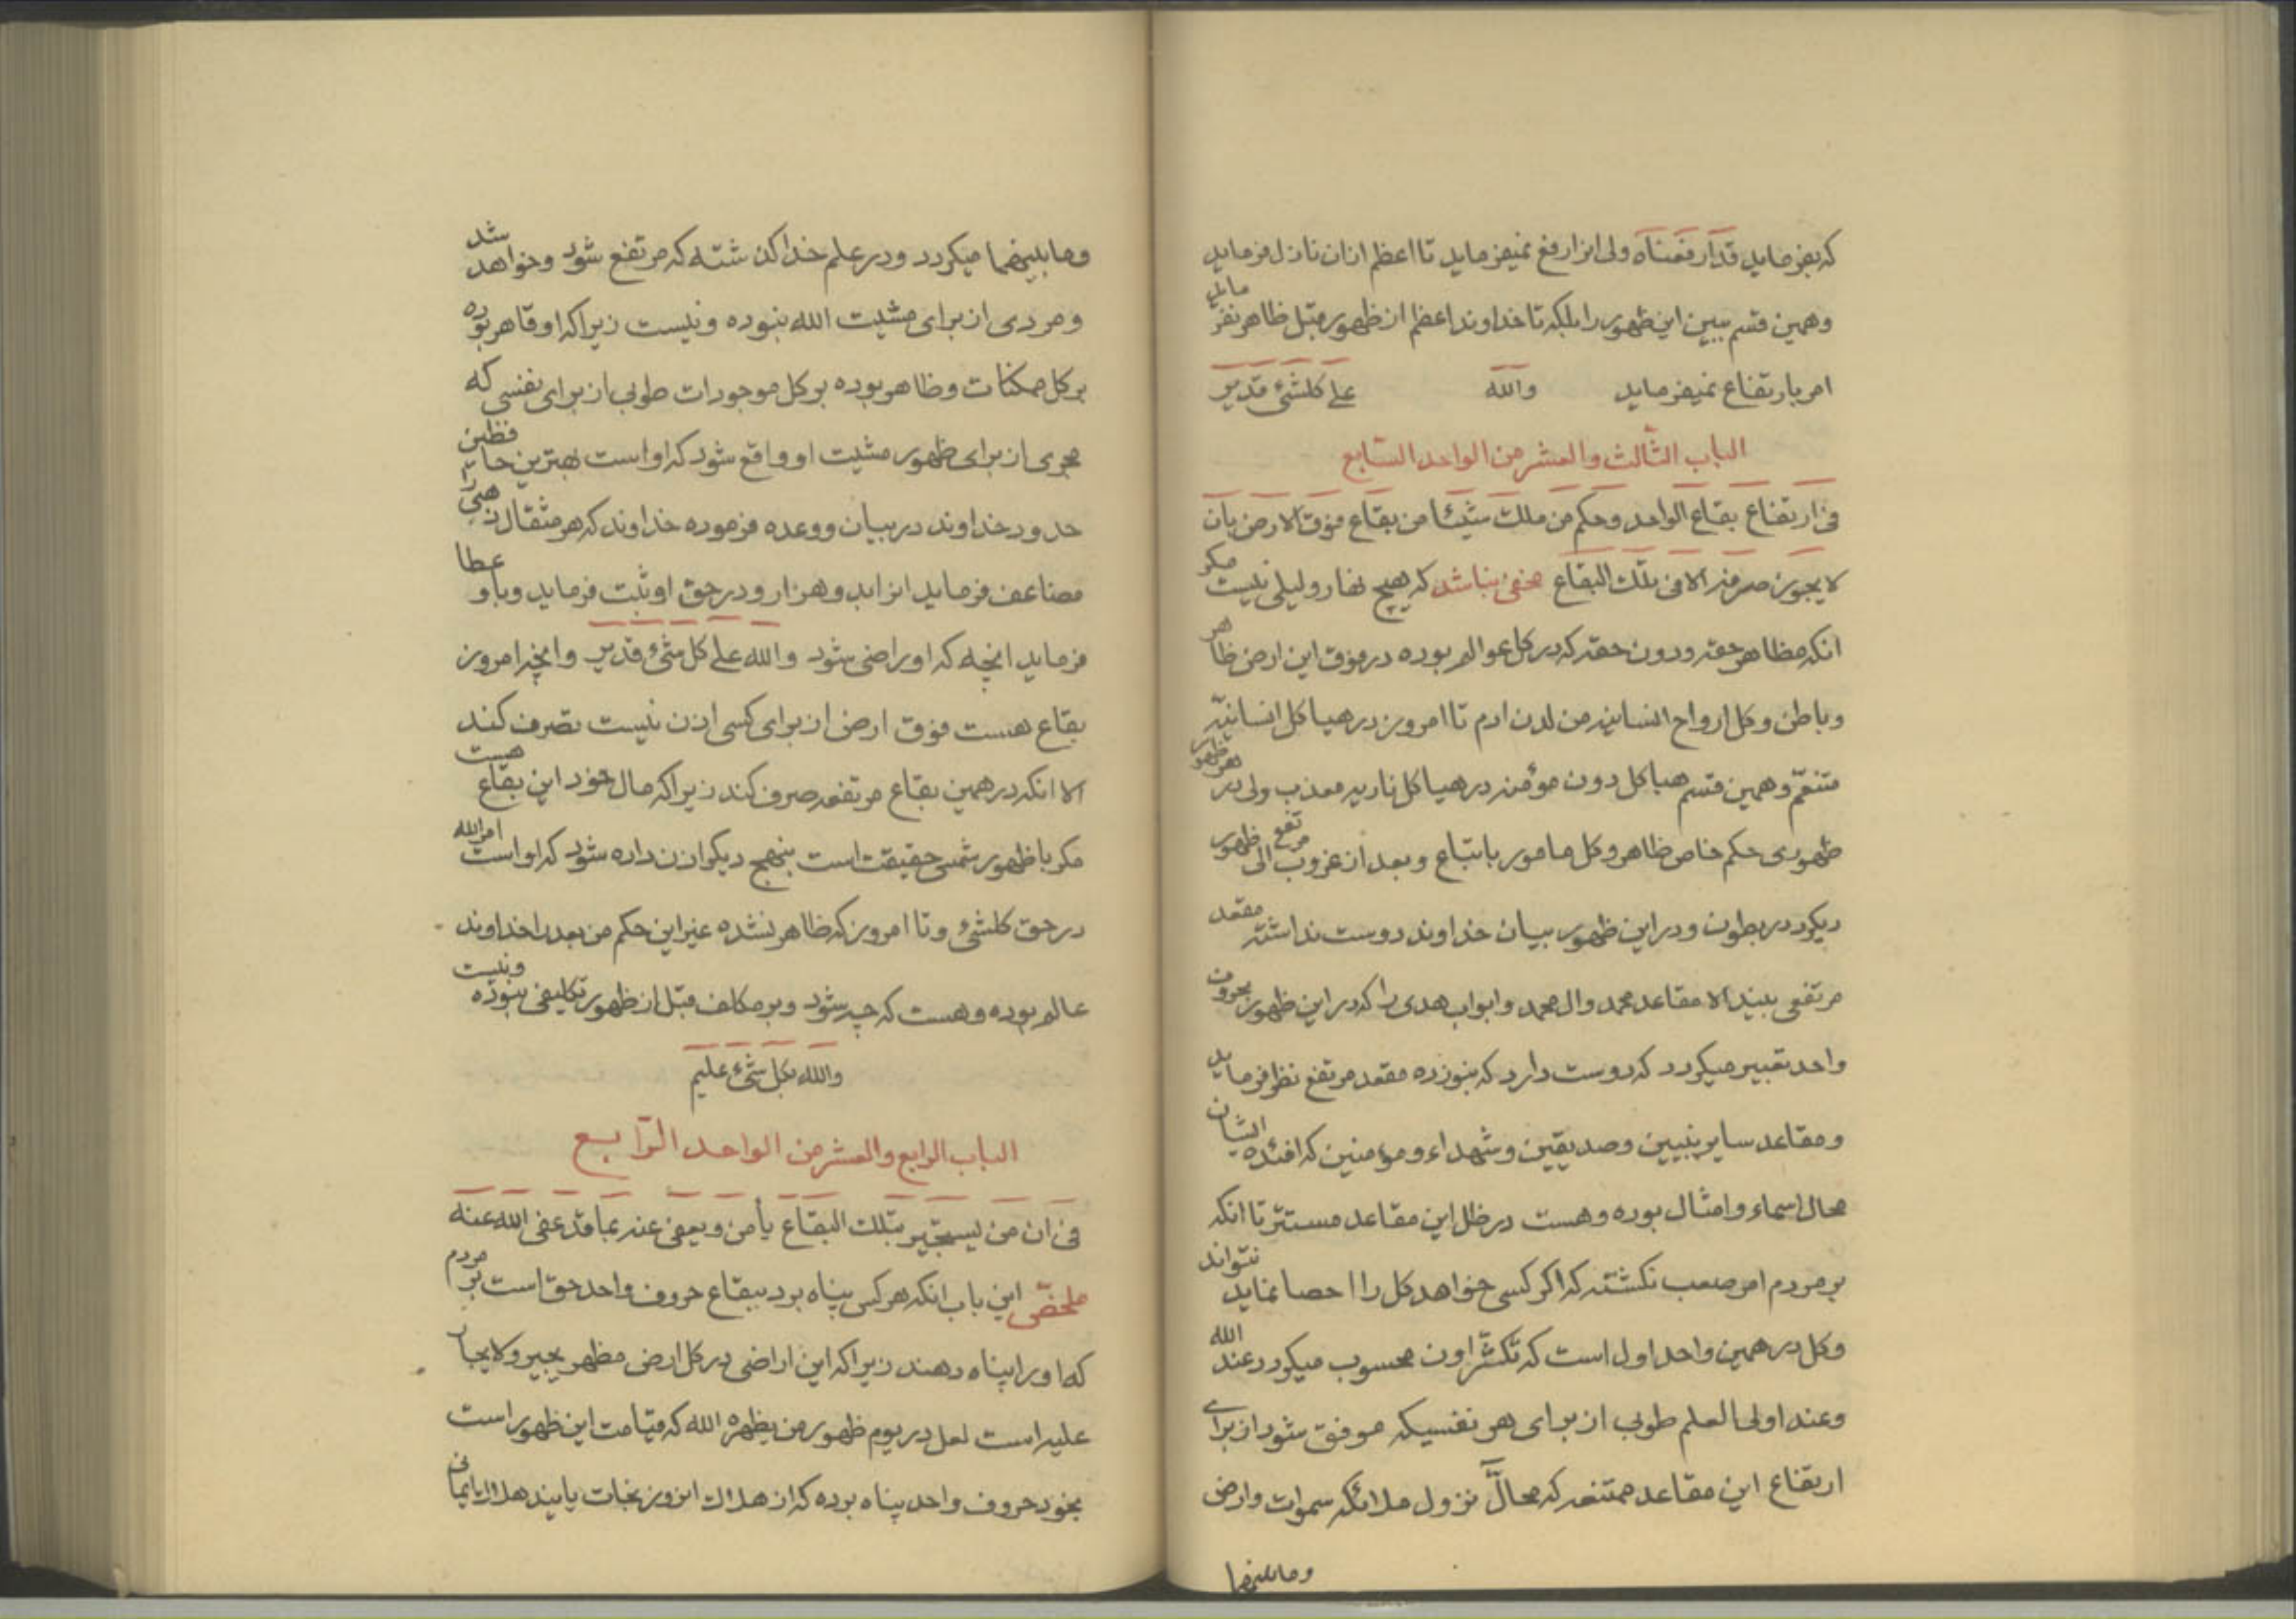 که بفرماید قد ارفعناه ولی انرا رفع نمیفرماید تا اعظم ازان نازل فرماید
وهمین قسم ببین این ظهور را بلکه تا خداوند اعظم از ظهور قبل ظاهر نفرماید
امر بارتفاع نمیفرماید والله علی کلشئ قدیر
الباب الثالث والعشر من الواحد الرّابع
فی ارتفاع بقاع الواحد وحکم من ملک شیئا من بقاع فوق الارض بان
لایجوز صرفه الا فی تلک البقاع مخفی نباشد که هیچ نهار ولیلی نیست مکر
انکه مظاهر حقه ودون حقه که در کل عوالم بوده در فوق این ارض ظاهر
وباطن وکل ارواح انسانیه من لدن ادم تا امروز در هیاکل انسانیّه
متنعّم وهمین قسم هیاکل دون مؤمنه در هیاکل ناریه معذب ولی در هر ظهور
ظهوری حکم خاص ظاهر وکل مامور باتباع وبعد از غروب مرتفع الی ظهور
دیکر در بطون ودر این ظهور بیان خداوند دوست نداشته مقعد
مرتفعی بیند الا مقاعد محمد وال محمد وابواب هدی را که در این ظهور بحروف
واحد تعبیر میکردد که دوست دارد که بنوزده مقعد مرتفع نظر فرماید
ومقاعد سایر نبیین وصدیقین وشهداء ومؤمنین که افئده ایشان
محال اسماء وامثال بوده وهست در ظل این مقاعد مستتر تا انکه
بر مردم امر صعب نکشته که اکر کسی خواهد کل را احصا نماید نتواند
وکل در همین واحد اول است که تکثّر اون محسوب میکردد عند الله
وعند اولی العلم طوبی از برای هر نفسیکه موفق شود از برای
ارتفاع این مقاعد ممتنعه که محالّ نزول ملائکه سموات وارض
ومابینهما
ومابینهما میکردد ودر علم خدا کذشته که مرتفع شود وخواهد شد
ومردی از برای مشیت الله نبوده ونیست زیرا که او قاهر بوده
بر کل ممکنات وظاهر بوده بر کل موجودات طوبی از برای نفسی که
مجری از برای ظهور مشیت او واقع شود که او است بهترین حافظین
حدود خداوند در بیان ووعده فرموده خداوند که هر مثقال ذهبی را
مضاعف فرماید انرا بدو هزار ودر حق او ثبت فرماید وباو عطا
فرماید انچه که او راضی شود والله علی کل شئ قدیر وانچه امروز
بقاع هست فوق ارض از برای کسی اذن نیست تصرف کند
الا انکه در همین بقاع مرتفعه صرف کند زیرا که مال خود این بقاع هست
مکر با ظهور شمس حقیقت است بنهج دیکر اذن داده شود که او است امر الله
در حق کلشئ وتا امروز که ظاهر نشده غیر این حکم من بعد را خداوند
عالم بوده وهست که چه شود وبر مکلف قبل از ظهور تکلیفی نبوده ونیست
والله بکل شئ علیم
الباب الرابع والعشر من الواحد الرّابع
فی ان من یستجیر بتلک البقاع یأمن ویعفی عنه عما قد عفی الله عنه
ملخّص این باب انکه هر کس پناه برد ببقاع حروف واحد حق است بر مردم
که او را پناه دهند زیرا که این اراضی در کل ارض مظهر یجیر ولا یجار
علیه است لعل در یوم ظهور من یظهره الله که قیامت این ظهور است
بخود حروف واحد پناه برده که از هلاک انروز نجات یابند